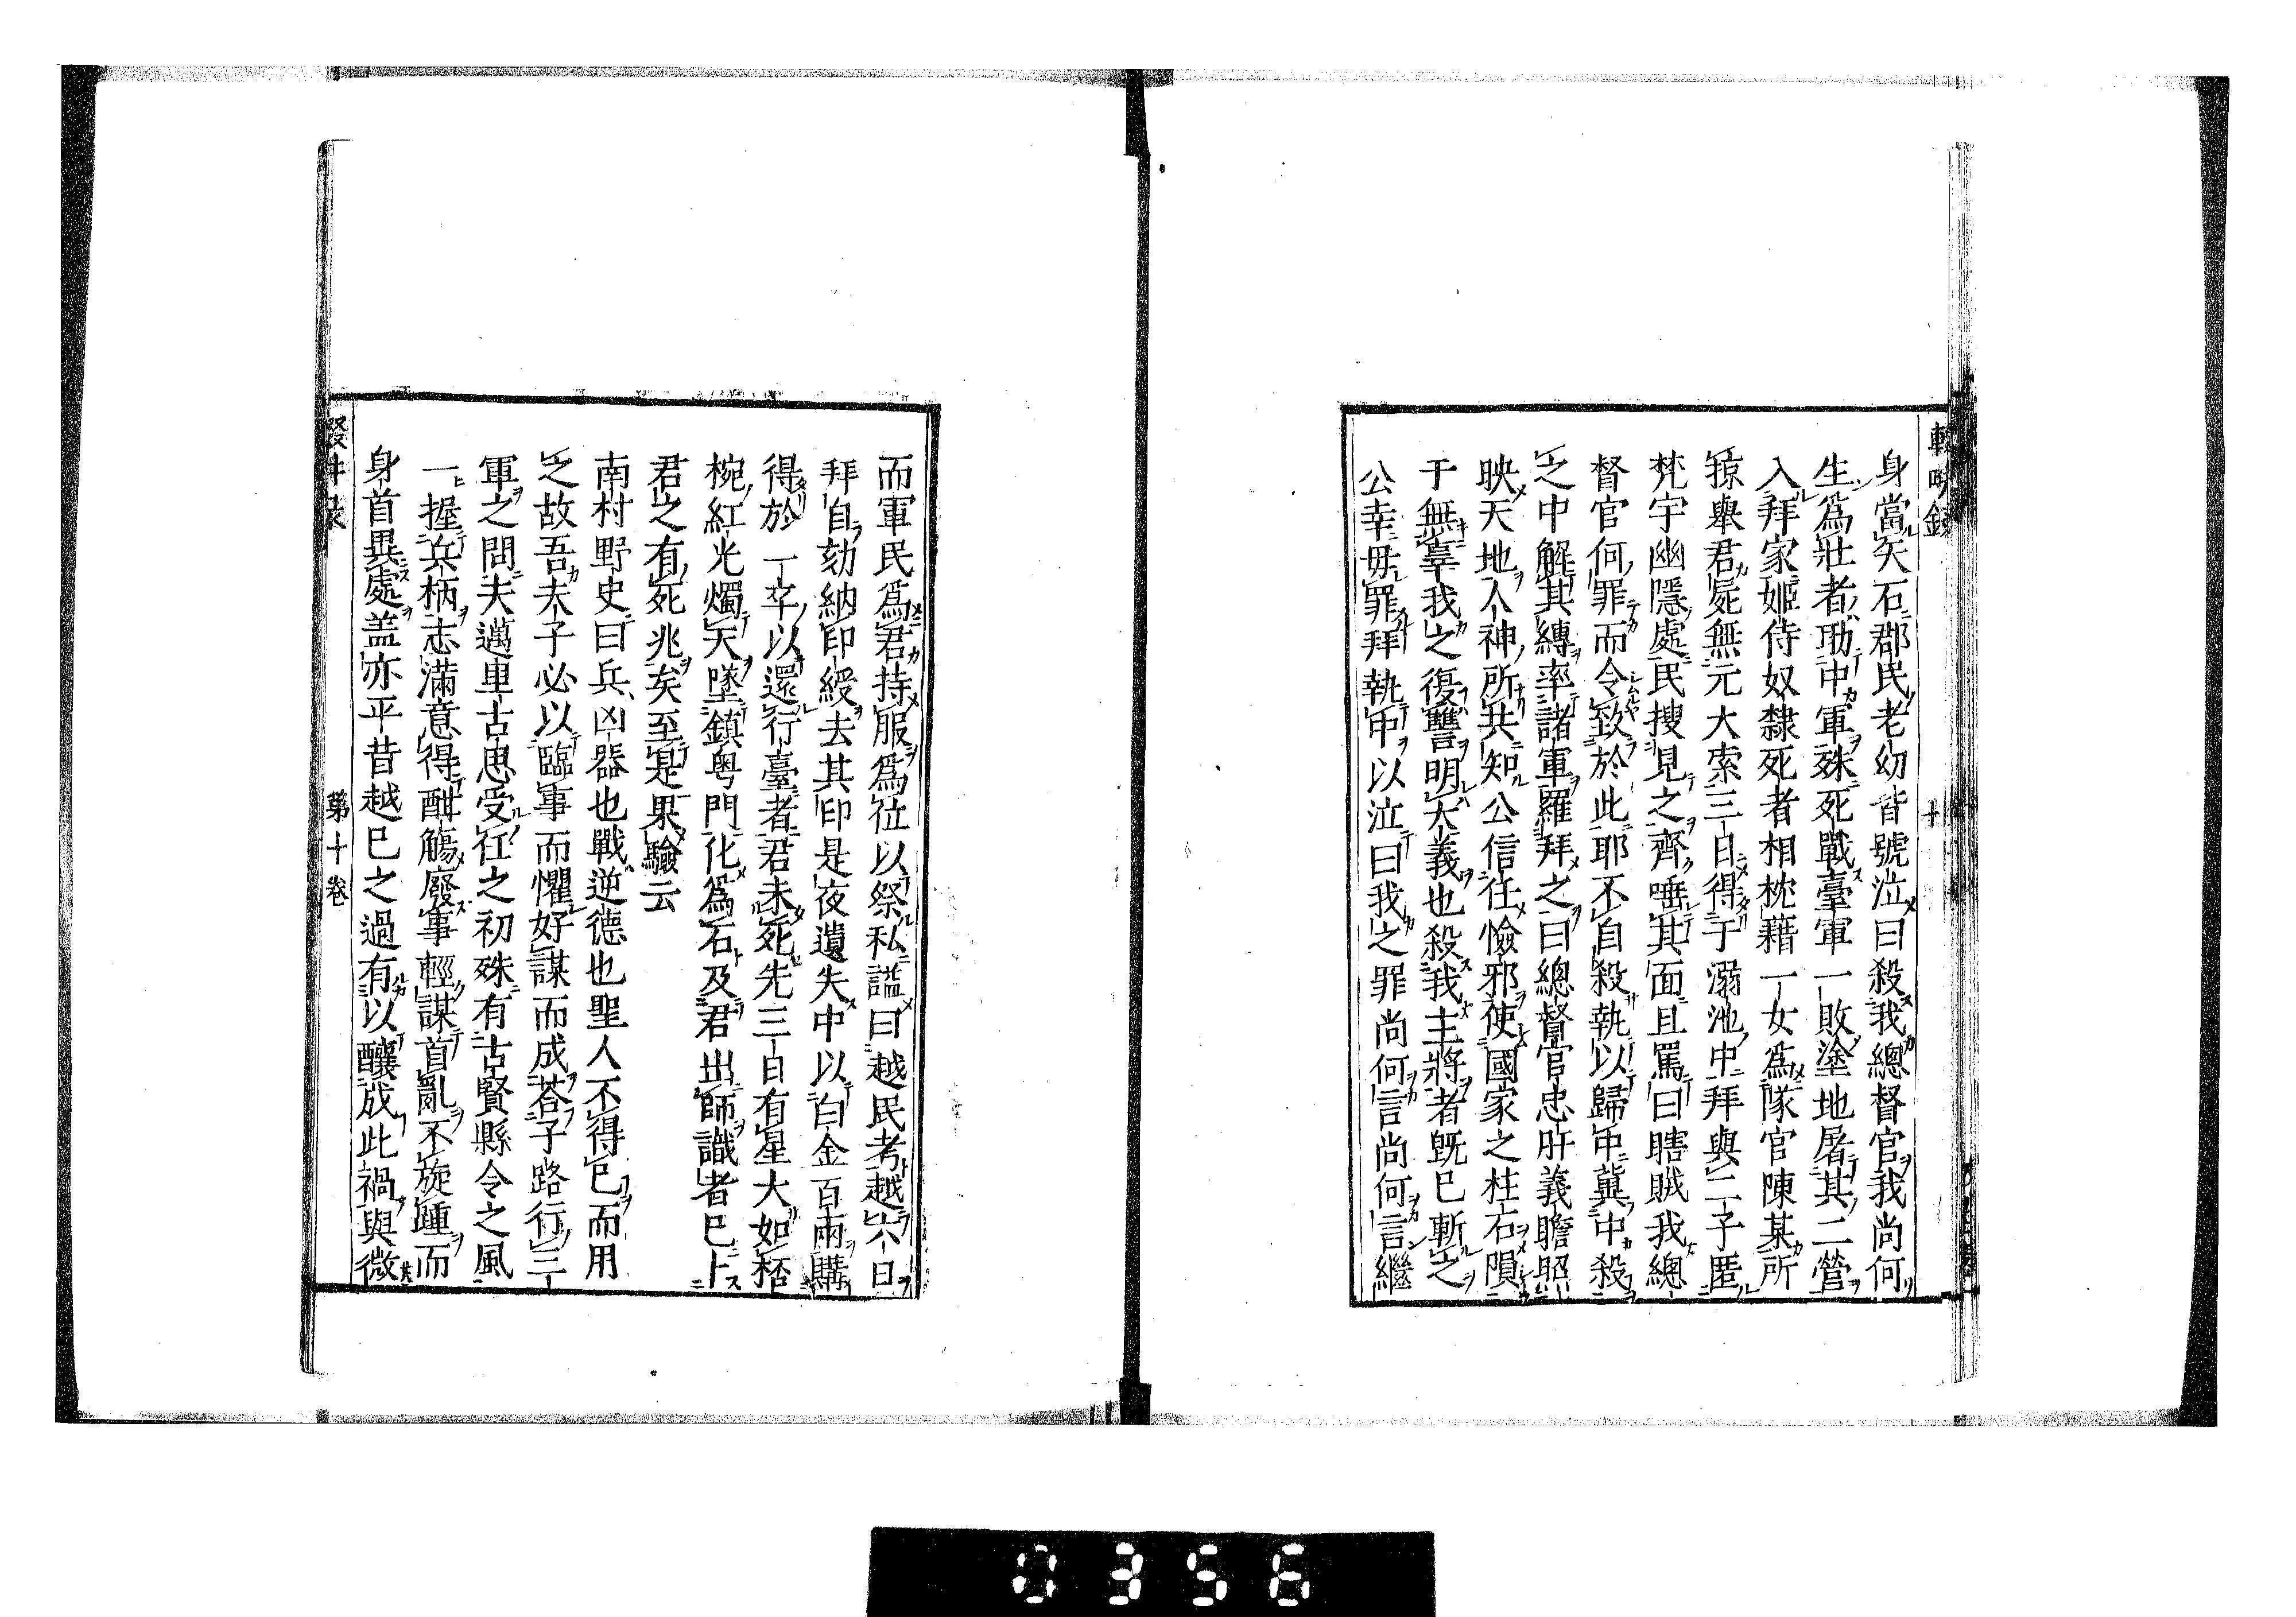 身當矢石郡民老幼皆號泣曰殺我總督官我尚何
生爲壯者助中軍殊死戰臺軍一敗塗地屠其二營
入拜家姬侍奴隸死者相枕藉一女爲隊官陳某所
掠舉君屍無元大索三日得于溺池中拜與二子匿
梵宇幽隱處民搜見之齊唾其面且罵曰瞎賊我總
督官何罪而令致於此耶不自殺執以歸中冀中殺
之中解其縛率諸軍羅拜之曰總督官忠肝義膽照
映天地人神所共知公信任憸邪使國家之柱石隕
于無辜我之復讐明大義也殺我主將者既已斬之
公幸毋罪拜執中以泣曰我之罪尚何言尚何言繼
而軍民爲君持服爲位以祭私謚曰越民考越六日
拜自劾納印綬去其印是夜遺失中以白金百兩購
得於一卒以還行臺者君未死先三日有星大如杯
椀紅光燭天墜鎮粤門化爲石及君出師識者已卜
君之有死兆矣至是果驗云
南村野史曰兵凶器也戰逆德也聖人不得已而用
之故吾夫子必以臨事而懼好謀而成荅子路行三
軍之問夫邁里古思受任之初殊有古賢縣令之風
一握兵柄志滿意得酣觴廢事輕謀首亂不旋踵而
身首異處盖亦平昔越已之過有以釀成此禍與微
第十卷
0356